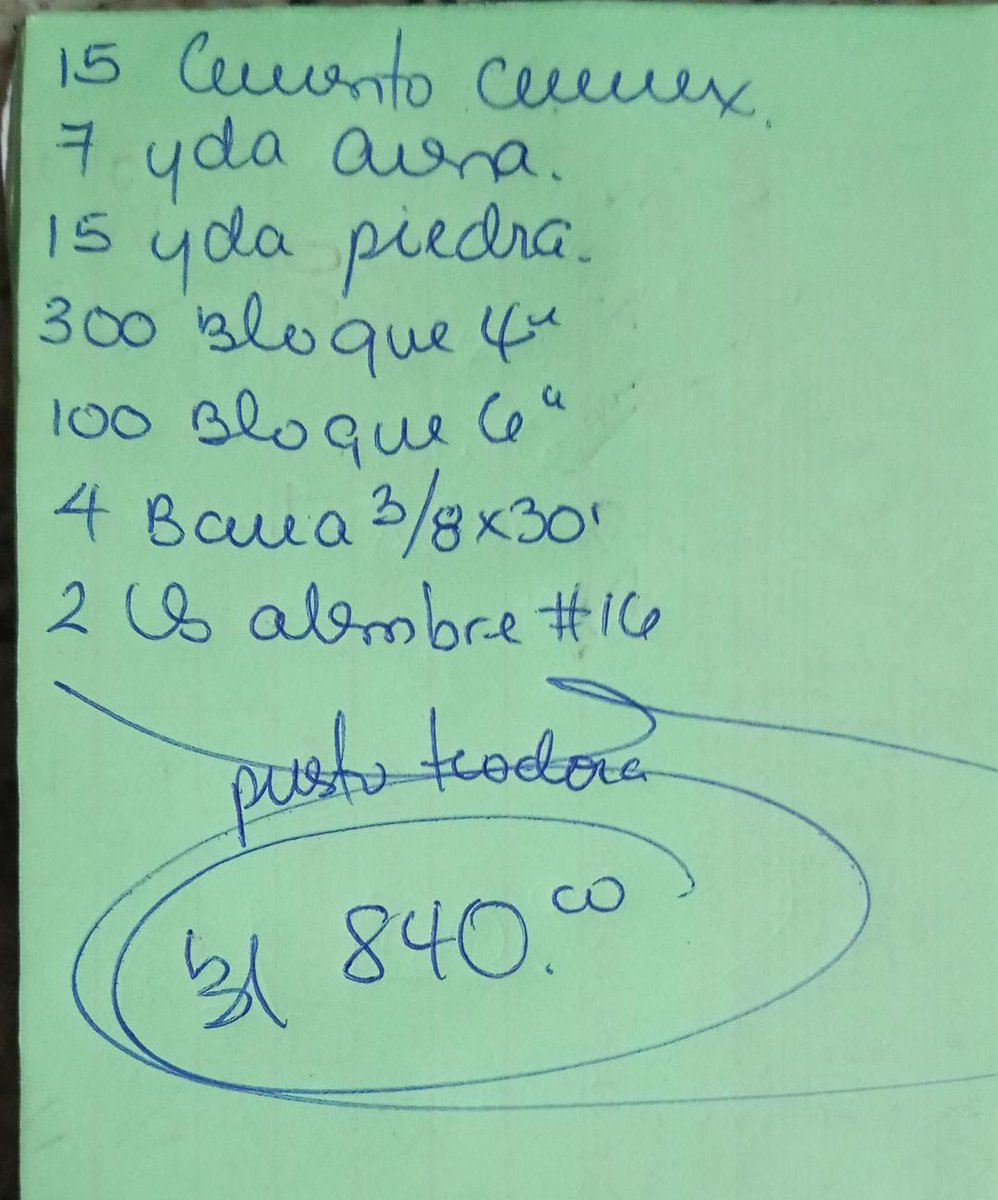 15 Cemento Cemex.
7 yda arena.
15 yda piedra.
300 Bloque 4"
100 Bloque 6"
4 Barra 3/8x30'
2 lbs alambre #16
puesto teodora
B/ 840.00